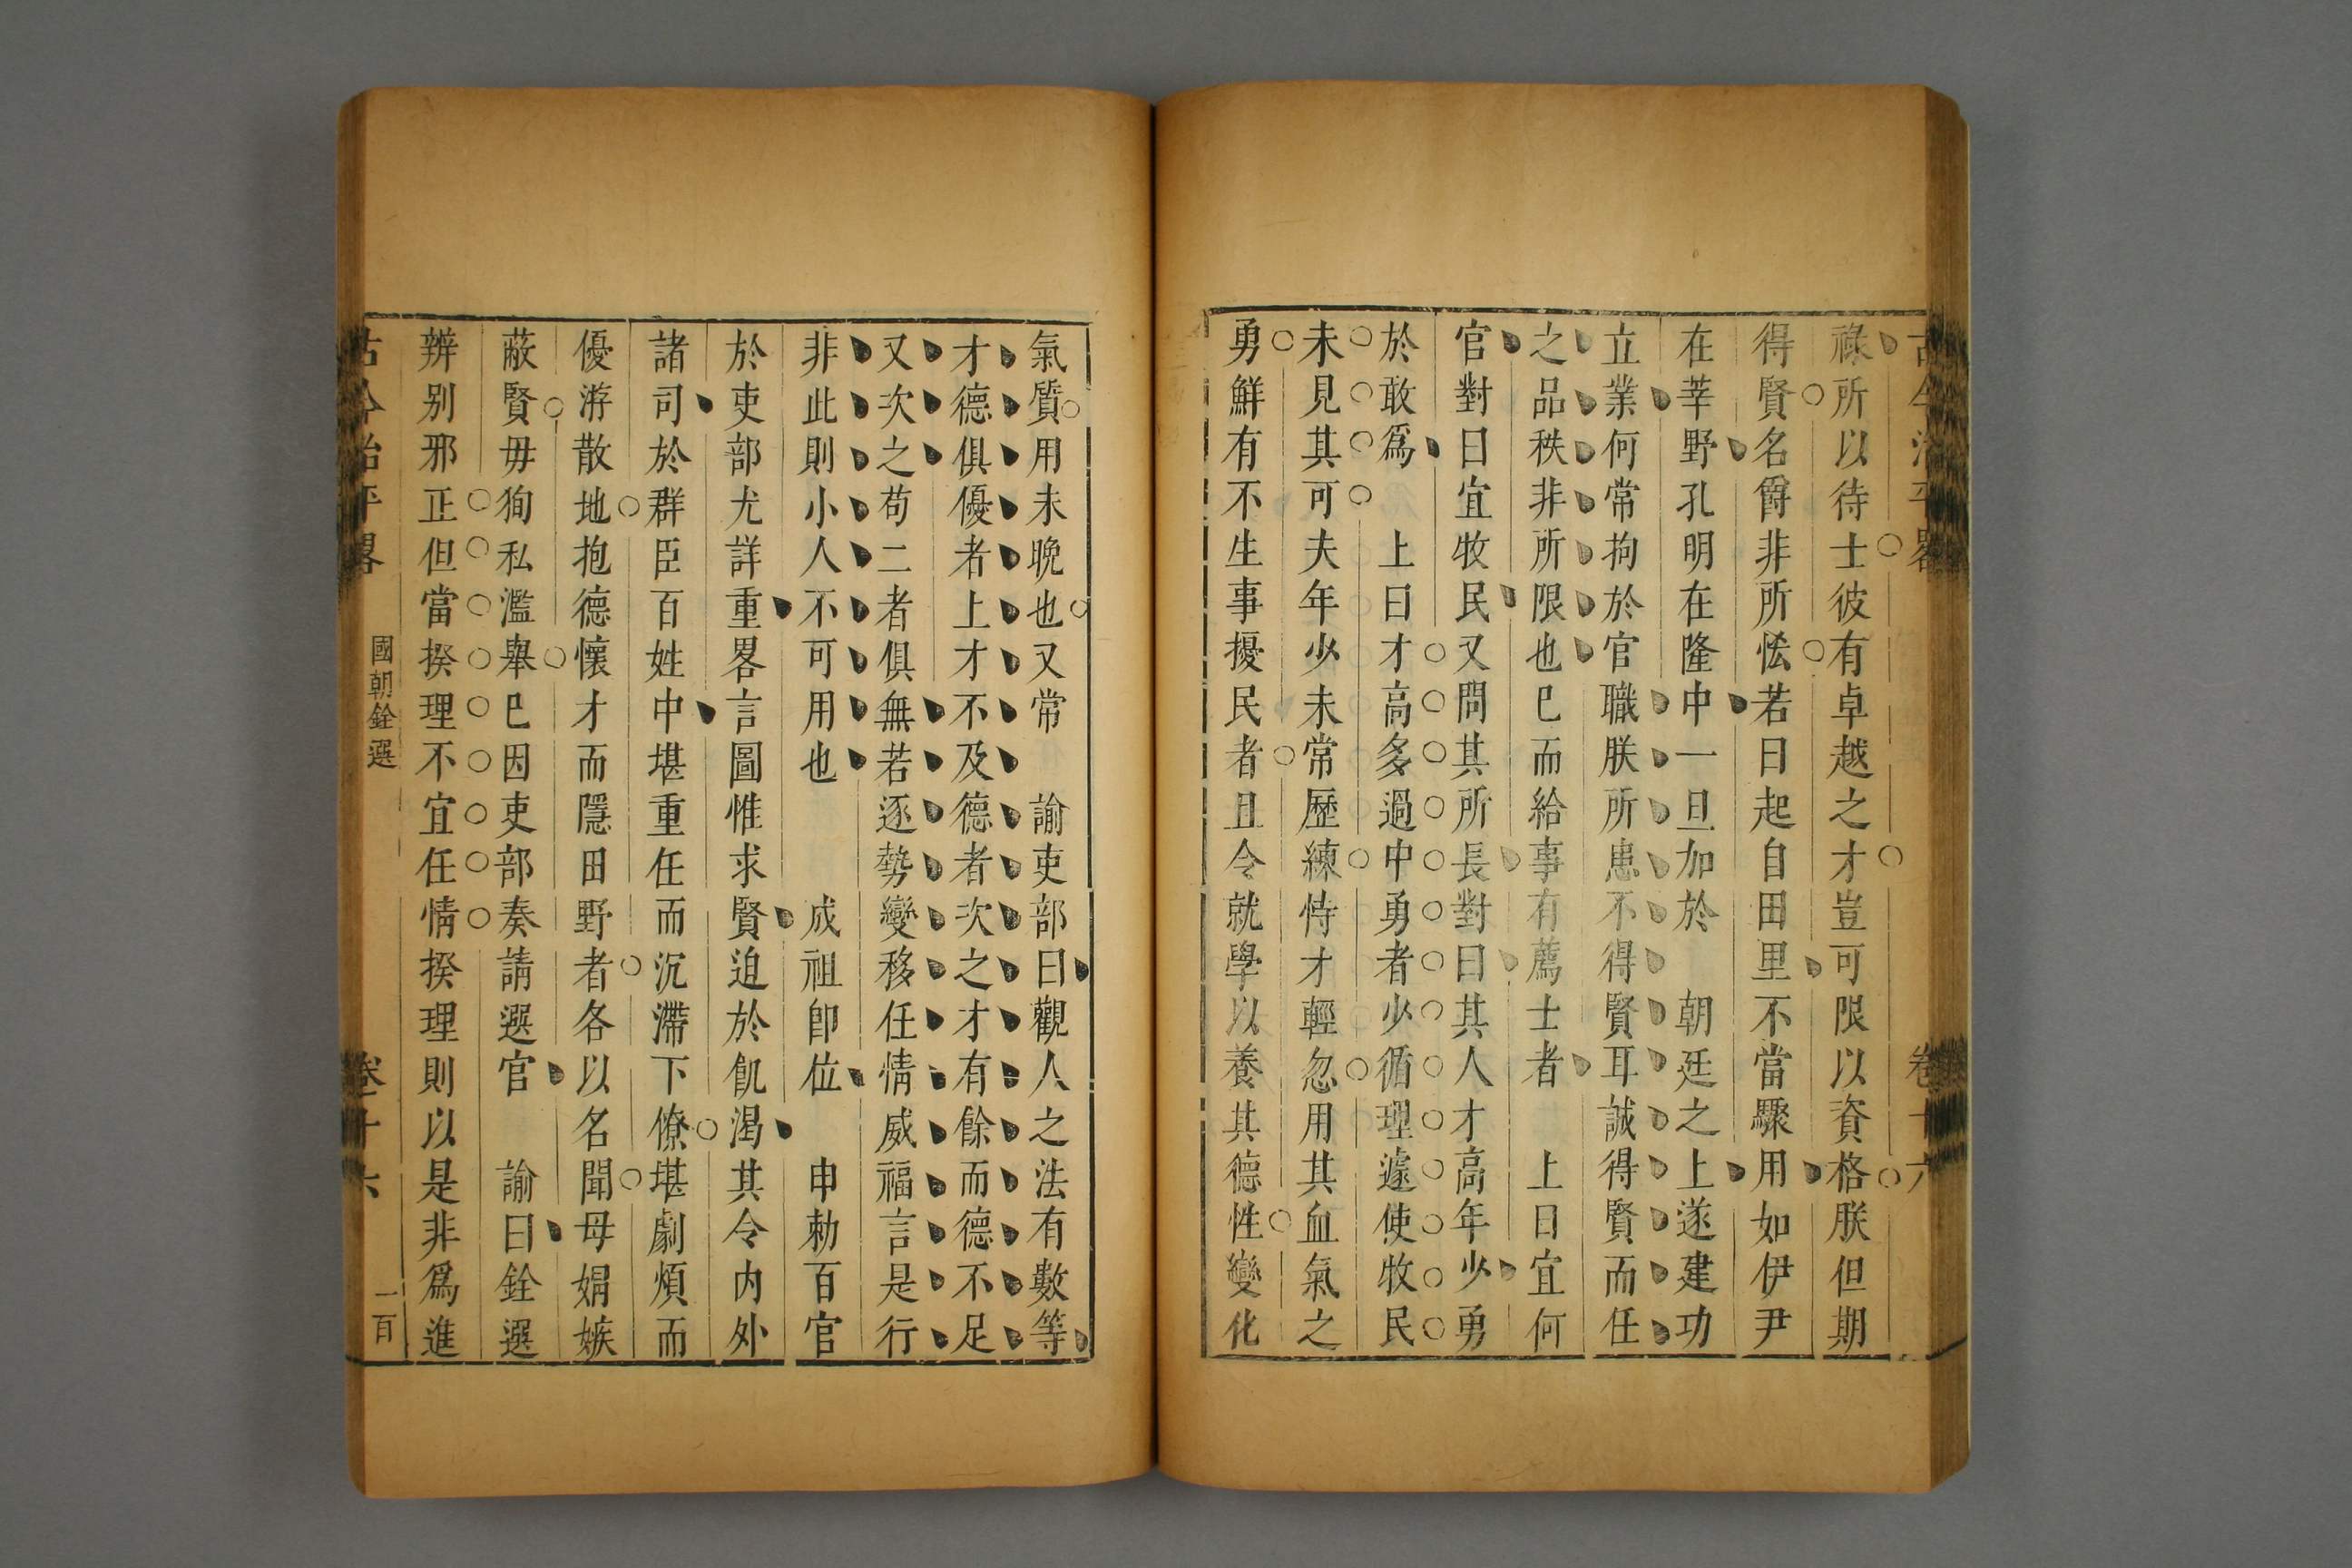 古今治平畧 卷十六
祿所以待士彼有卓越之才豈可限以資格朕但期
得賢名爵非所恡若曰起自田里不當驟用如伊尹
在莘野孔明在隆中一旦加於 朝廷之上遂建功
立業何常拘於官職朕所患不得賢耳誠得賢而任
之品秩非所限也巳而給事有薦士者 上曰宜何
官對曰宜牧民又問其所長對曰其人才高年少勇
於敢爲 上曰才高多過中勇者少循理遽使牧民
未見其可夫年少未常歷練恃才輕忽用其血氣之
勇鮮有不生事擾民者且令就學以養其德性變化
氣質用未晚也又常 諭吏部曰觀人之法有數等
才德俱優者上才不及德者次之才有餘而德不足
又次之苟二者俱無若逐勢變移任情威福言是行
非此則小人不可用也 成祖卽位 申勅百官
於吏部尤詳重畧言圖惟求賢迫於飢渴其令内外
諸司於群臣百姓中堪重任而沉滯下僚堪劇煩而
優游散地抱德懷才而隱田野者各以名聞毋娼嫉
蔽賢毋狥私濫舉巳因吏部奏請選官 諭曰銓選
辨别邪正但當揆理不宜任情揆理則以是非爲進
古今治平畧 國朝銓選 卷十六 一百